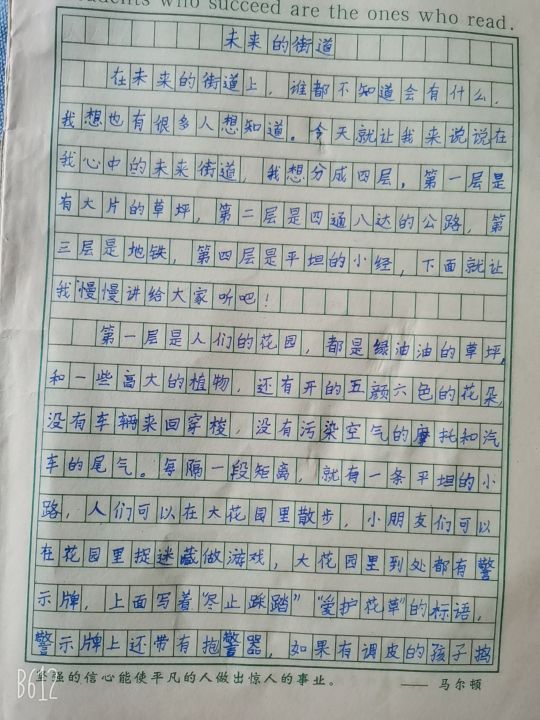 students who succeed are the ones who read.
未来的街道
在未来的街道上，谁都不知道会有什么，
我想也有很多人想知道。今天就让我来说说在
我心中的未来街道，我想分成四层，第一层是
有大片的草坪，第二层是四通八达的公路，第
三层是地铁，第四层是平坦的小经，下面就让
我慢慢讲给大家听吧！
第一层是人们的花园，都是绿油油的草坪，
和一些高大的植物，还有开的五颜六色的花朵，
没有车辆来回穿梭，没有污染空气的摩托和汽
车的尾气。每隔一段矩离，就有一条平坦的小
路，人们可以在大花园里散步，小朋友们可以
在花园里捉迷藏做游戏，大花园里到处都有警
示牌，上面写着“尽止踩踏”“爱护花草”的标语，
警示牌上还带有抱警器，如果有调皮的孩子捣
坚强的信心能使平凡的人做出惊人的事业。 —— 马尔顿
B612